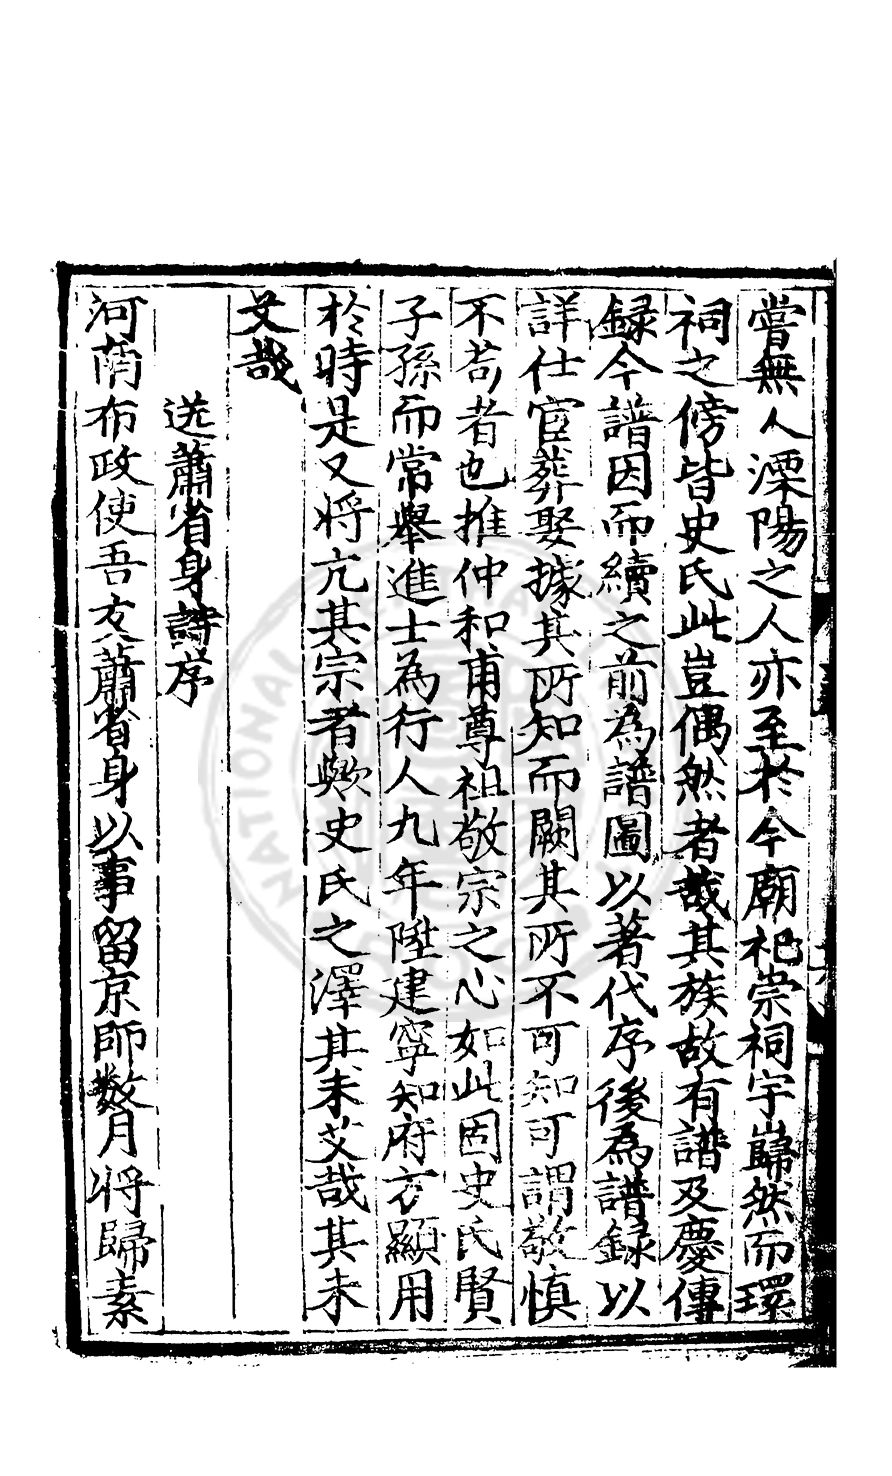 嘗無人溧陽之人亦至於今廟祀崇祠宇巋然而環
祠之傍皆史氏此豈偶然者哉其族故有譜及慶傳
録今譜因而續之前為譜圖以著代序後為譜録以
詳仕宦葬娶據其所知而闕其所不可知可謂敬慎
不苟者也推仲和甫尊祖敬宗之心如此固史氏賢
子孫而常舉進士為行人九年陞建寧知府方顯用
於時是又将亢其宗者歟史氏之澤其未艾哉其未
艾哉
送蕭省身詩序
河南布政使吾友蕭省身以事留京師数月将歸素
NATIONAL CENTRAL